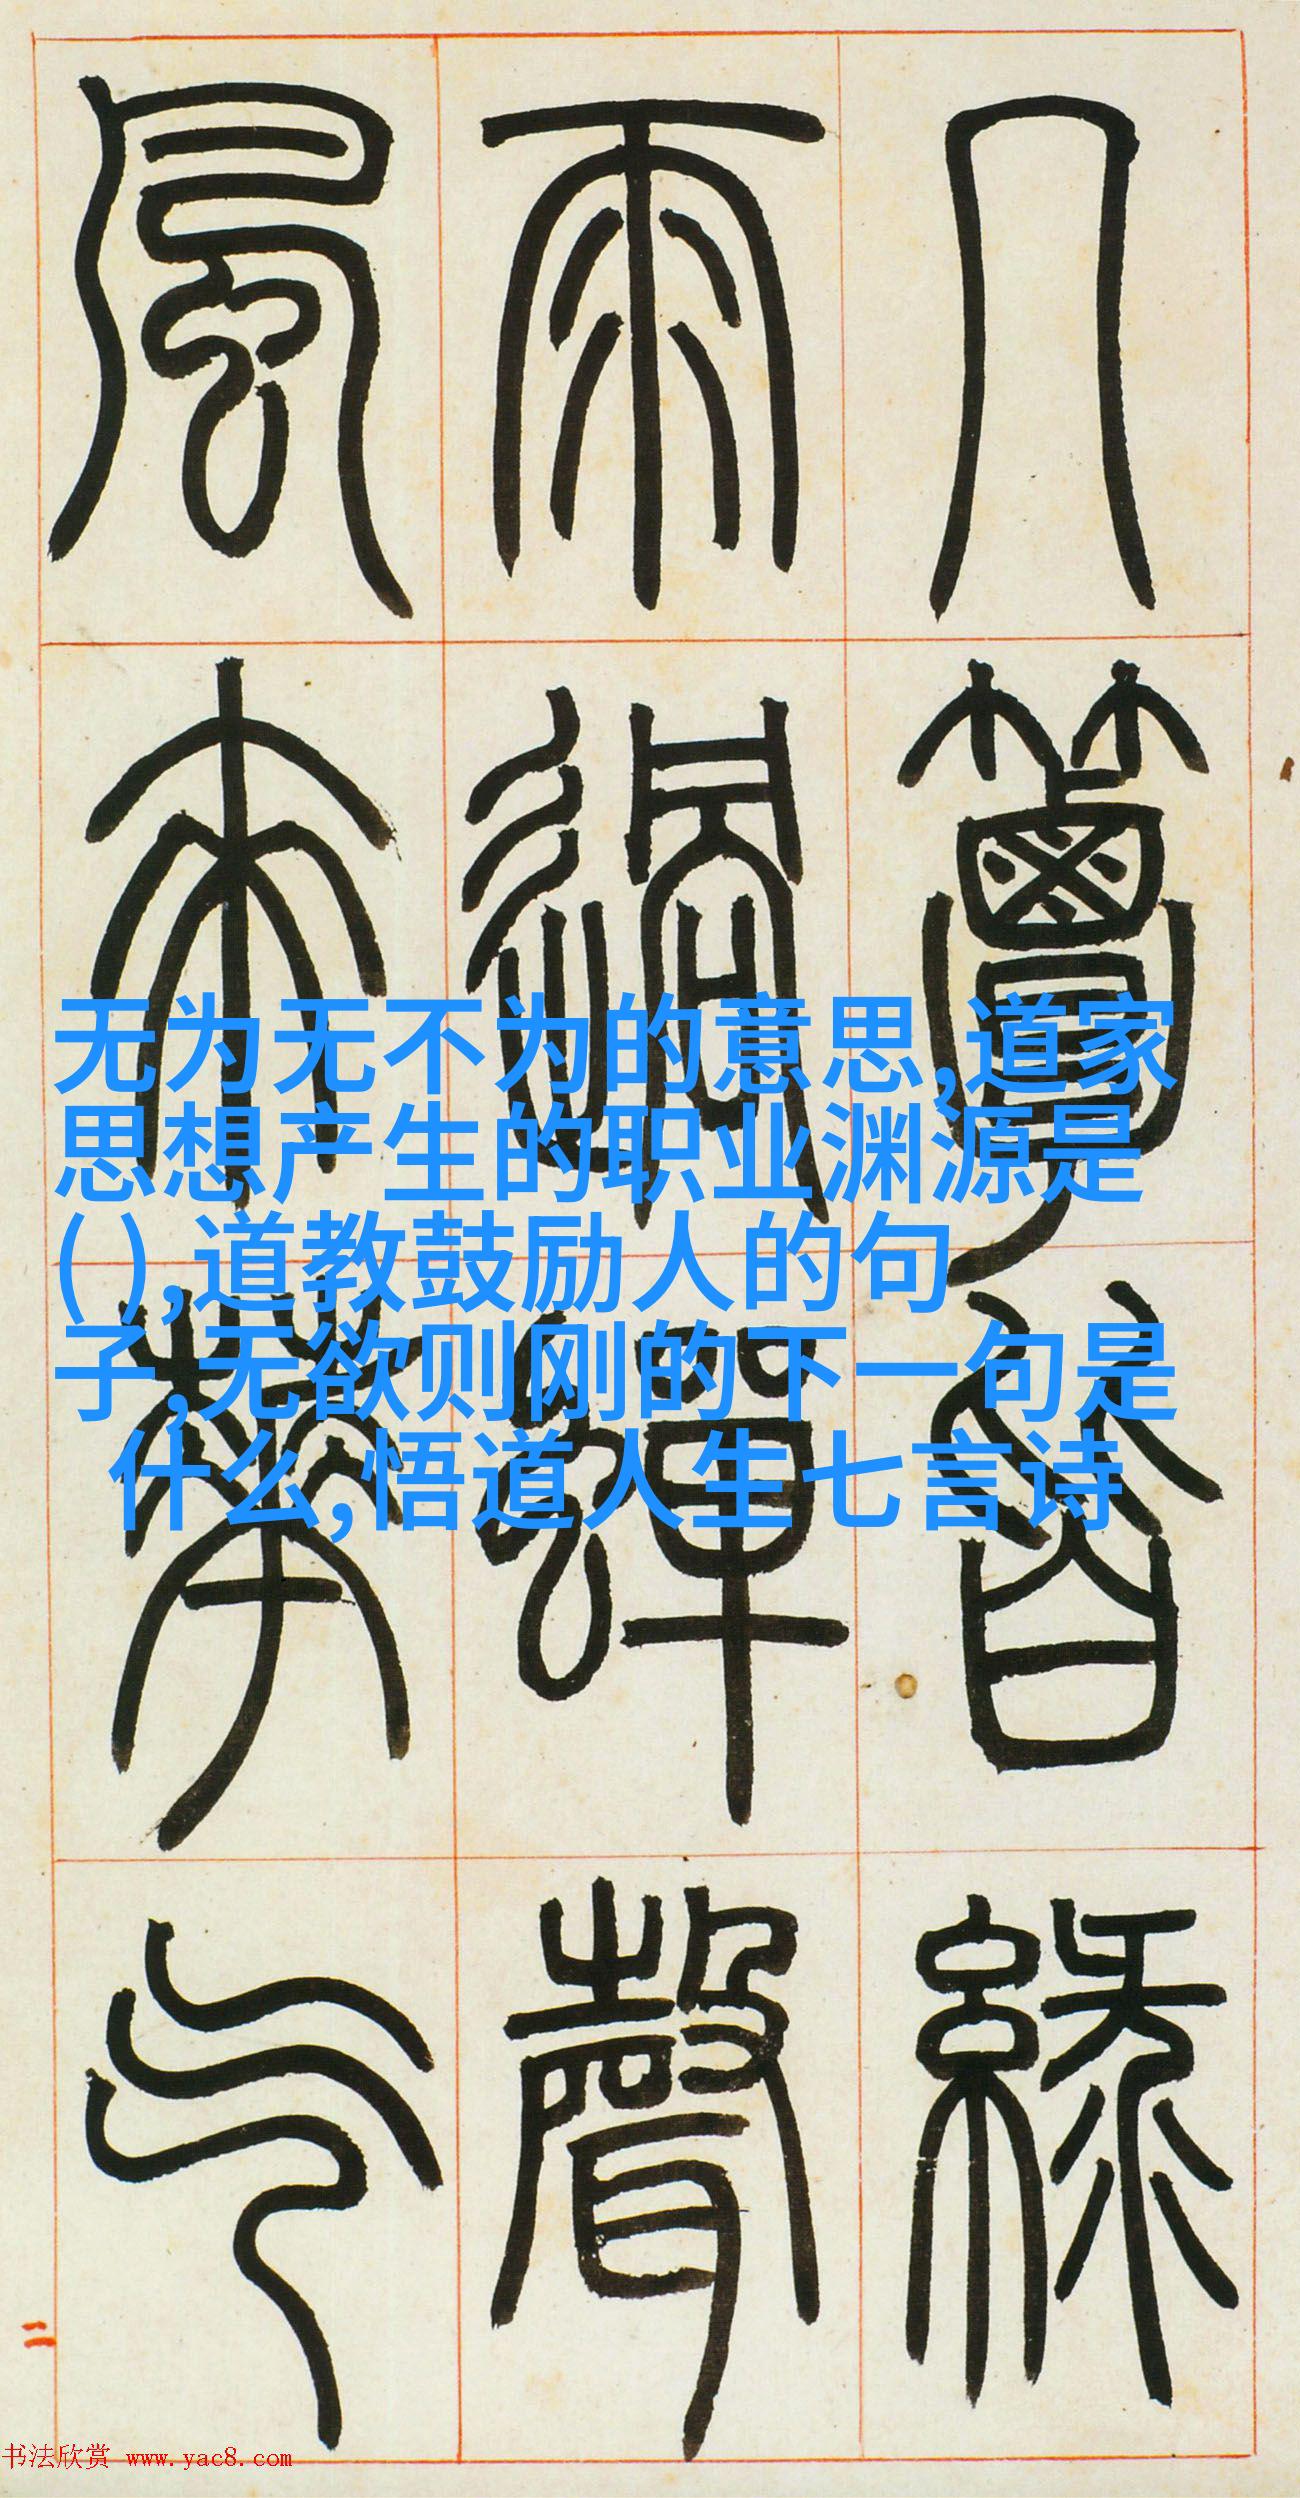 几簟
雨過蟬聲
風來華气
无为无不为的意思,道家
思想产生的职业渊源是
(),道教鼓励人的句
子,无欲则刚的下一句是
什么,悟道人生七言诗
二
书法欣赏 www.yac8.com